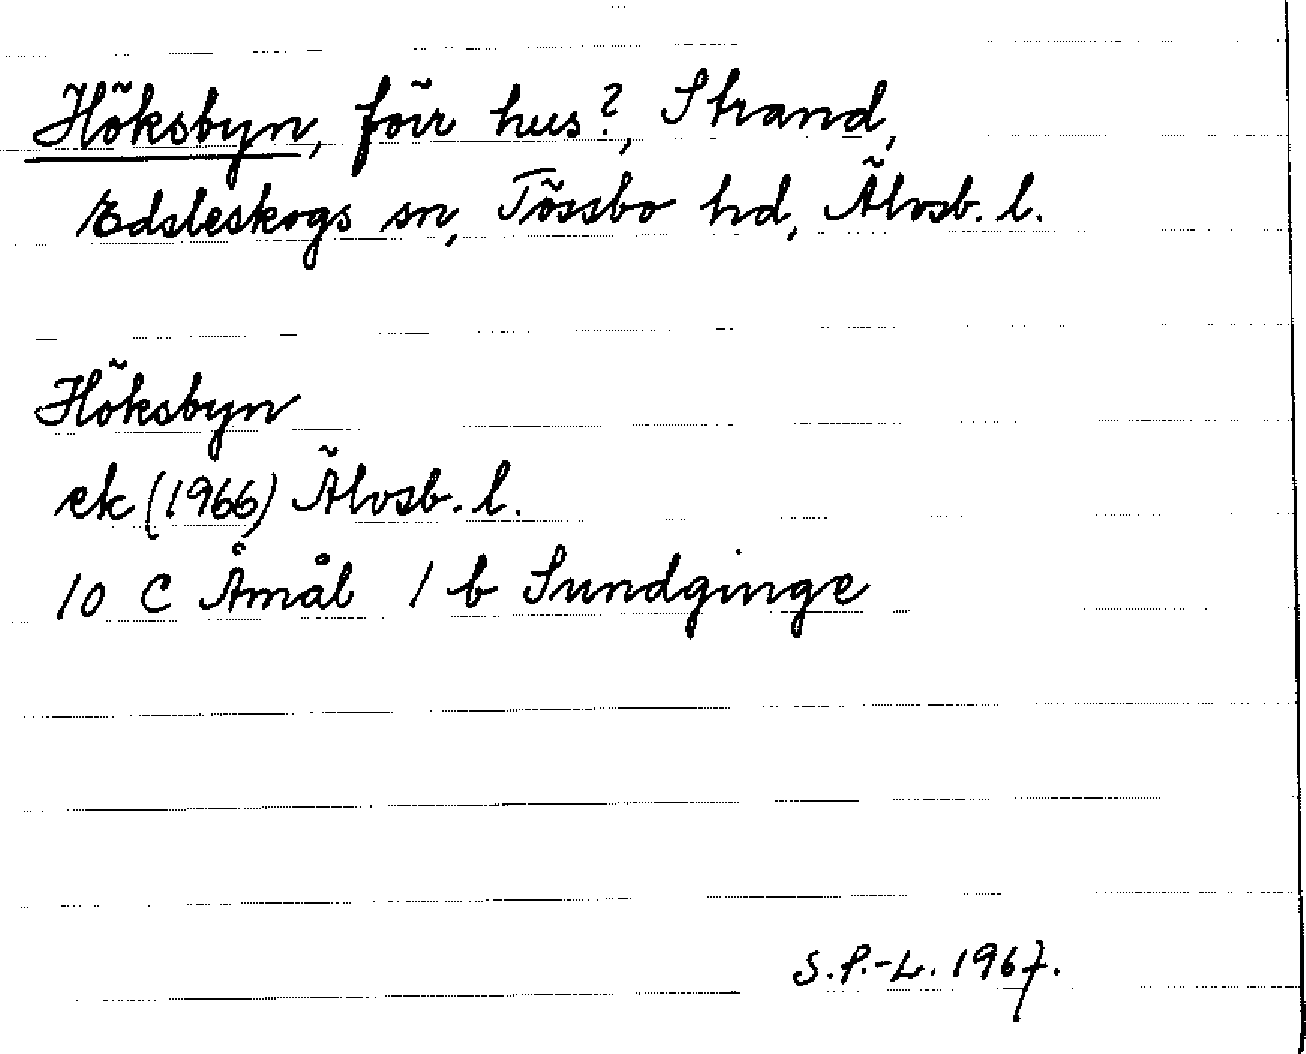 Höksbyn, förr hus?, Strand,
Edsleskogs sn, Tössbo hd, Älvsb. l.
Höksbyn
ek (1966) Älvsb. l.
10 C Åmål 1 b Sundginge
S.P.-L. 1967.